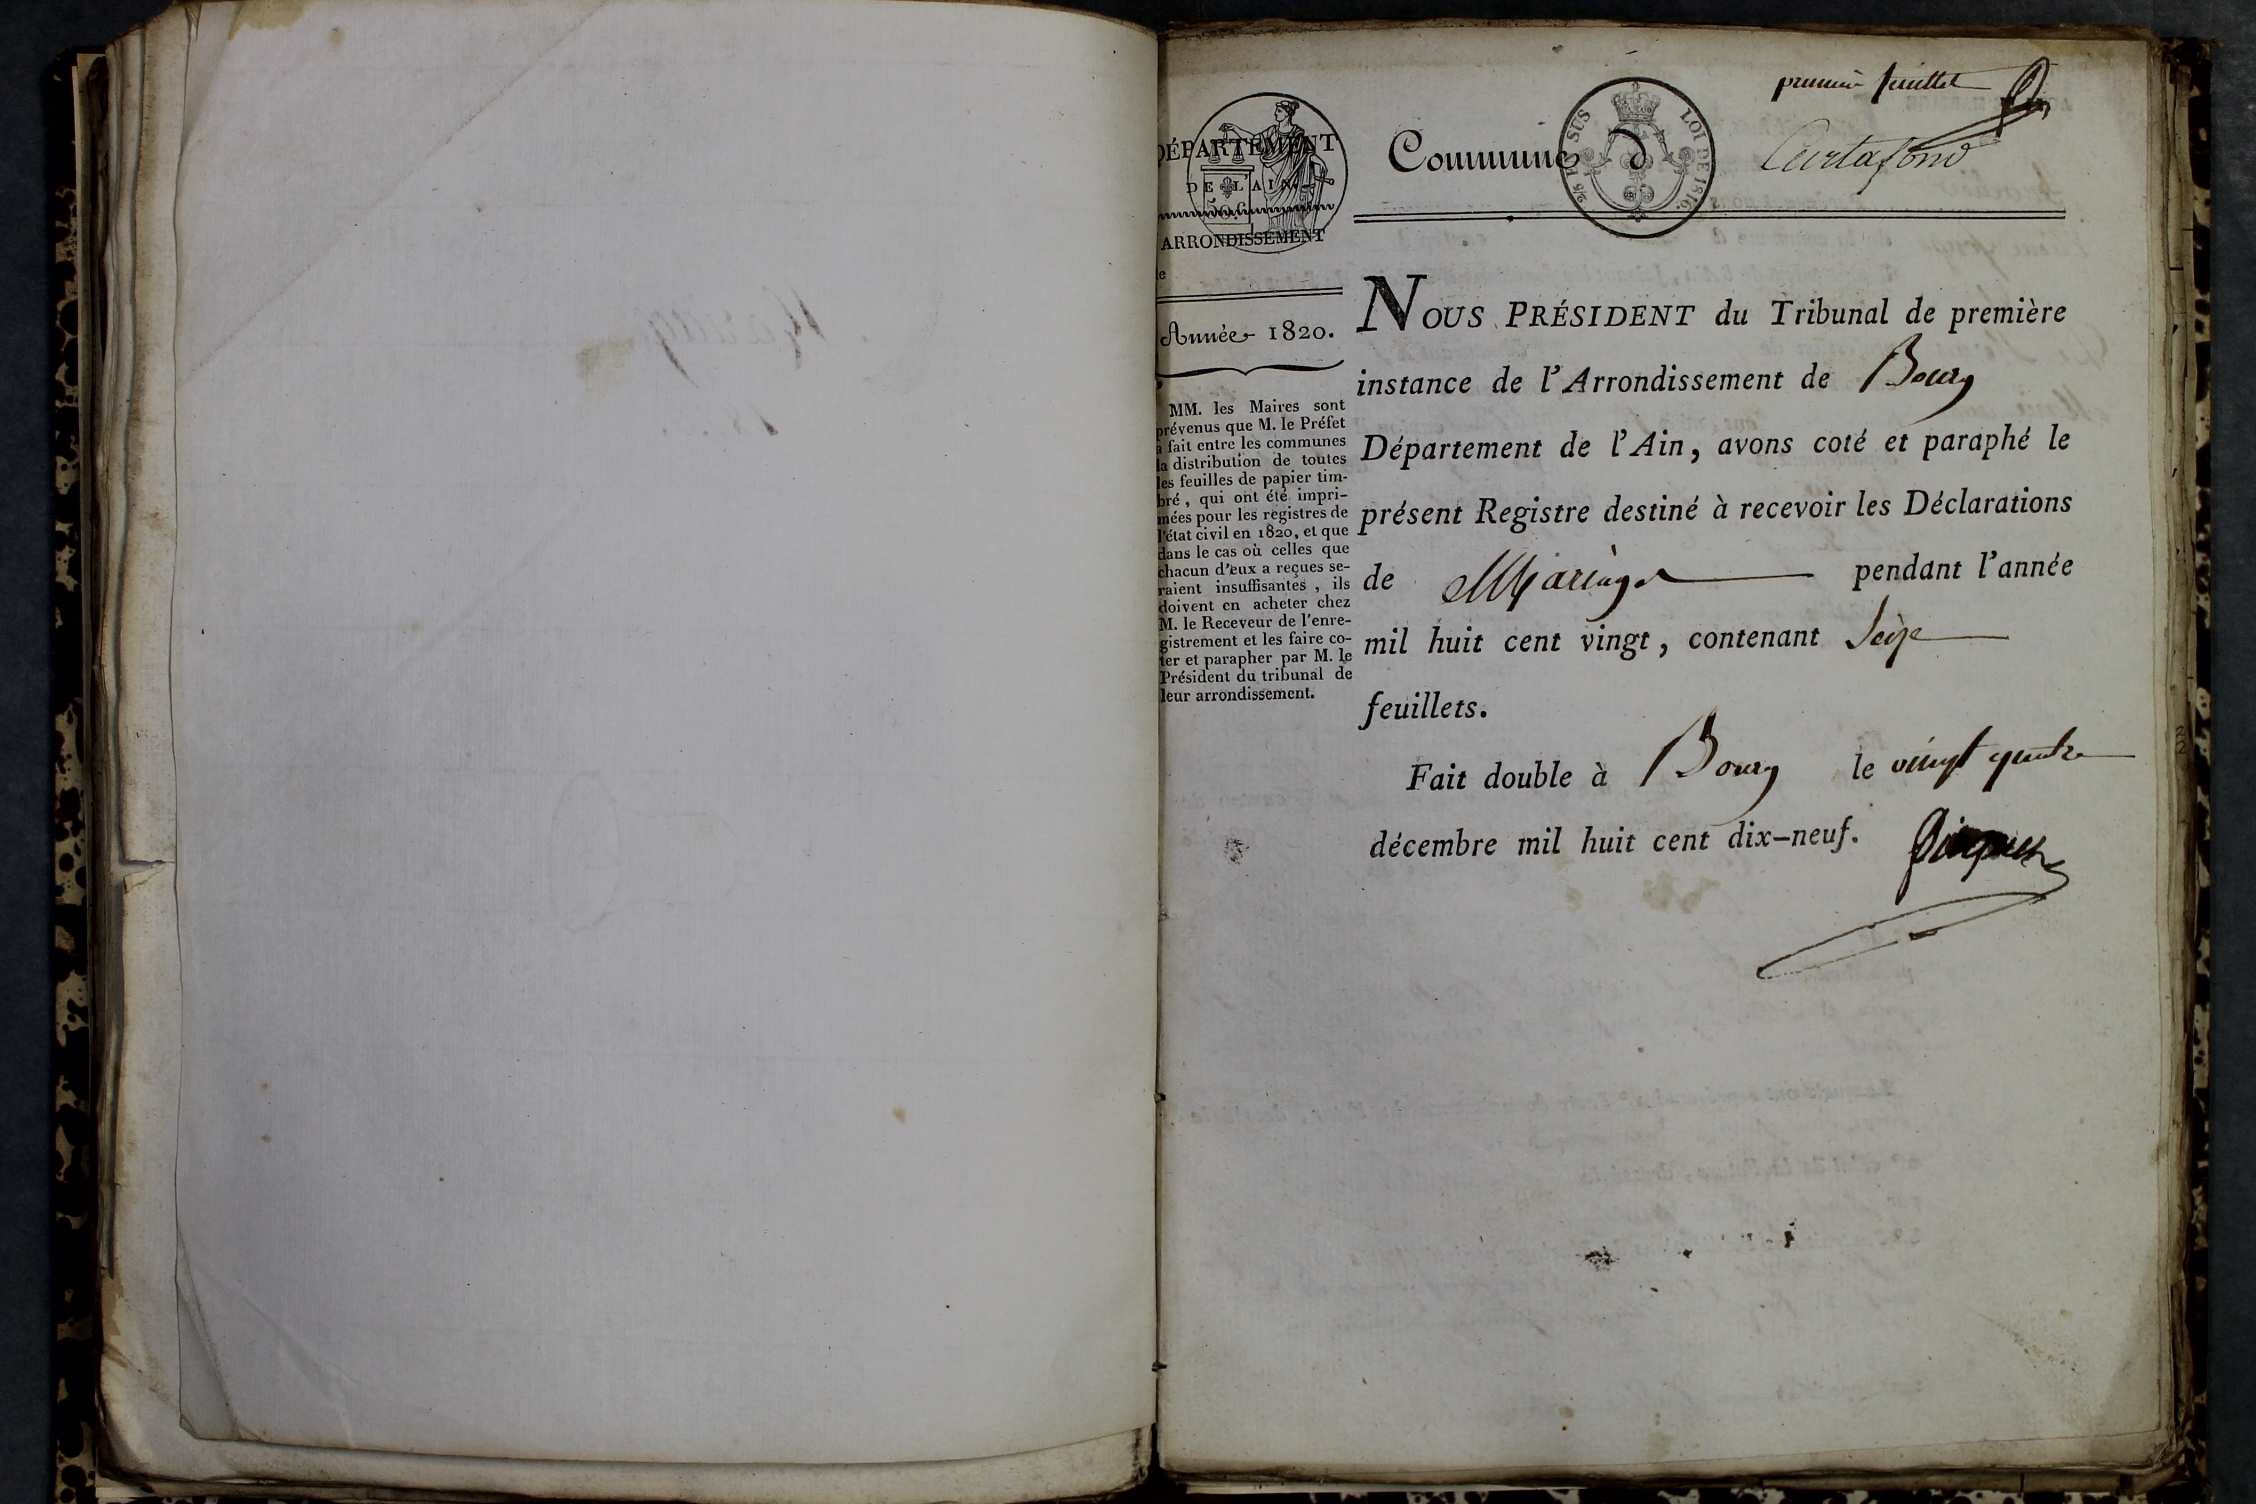 premier feuillet
DÉPARTEMENT
DE L'AIN
50 c
ARRONDISSEMENT
de
Année 1820.
MM. les Maires sont
prévenus que M. le Préfet
a fait entre les communes
la distribution de toutes
les feuilles de papier tim-
bré, qui ont été impri-
mées pour les registres de
l'état civil en 1820, et que
dans le cas où celles que
chacun d'eux a reçues se-
raient insuffisantes, ils
doivent en acheter chez
M. le Receveur de l'enre-
gistrement et les faire co-
ter et parapher par M. le
Président du tribunal de
leur arrondissement.
Commune d Curtafond
EN SUS LOI DE 1816.
NOUS PRÉSIDENT du Tribunal de première
instance de l'Arrondissement de Bourg
Département de l'Ain, avons coté et paraphé le
présent Registre destiné à recevoir les Déclarations
de Mariage pendant l'année
mil huit cent vingt, contenant Seize
feuillets.
Fait double à Bourg le vingt quatre
décembre mil huit cent dix-neuf.